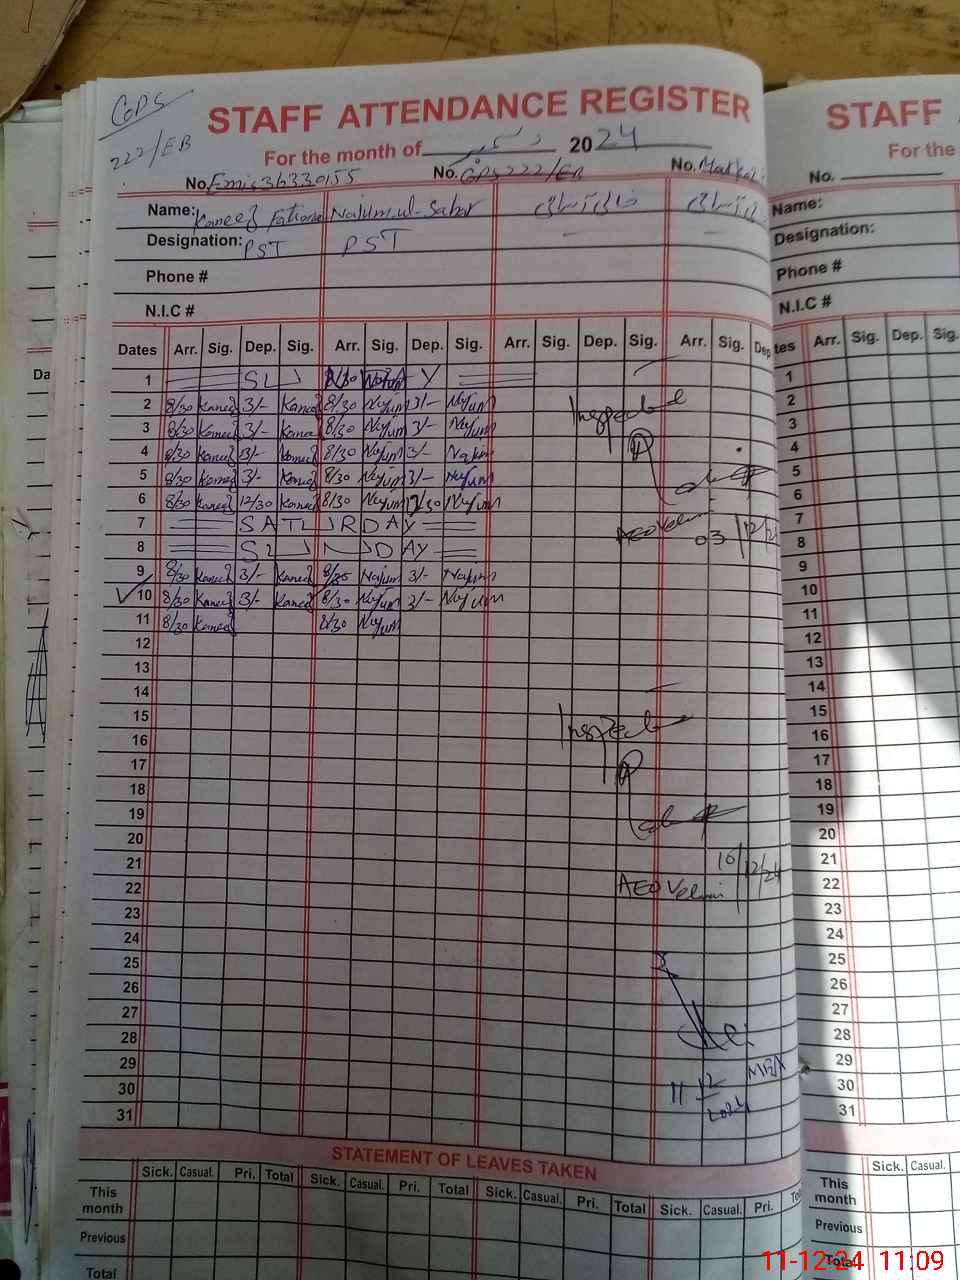 GPS
222/EB
STAFF ATTENDANCE REGISTER
For the month of دسمبر 2024
No. Emis 36330155 No. GPS 222/EB No. Markaz
Name: Kaneez Fatima Najum-ul-Sahar خالی آسامی خالی آسامی
Designation: PST PST
Phone #
N.I.C #
Dates Arr. Sig. Dep. Sig. Arr. Sig. Dep. Sig. Arr. Sig. Dep. Sig. Arr. Sig. Dep
1 SU 8/30 Najum A Y
2 8/30 Kaneez 3/- Kaneez 8/30 Najum 3/- Najum
3 8/30 Kaneez 3/- Kaneez 8/30 Najum 3/- Najum
4 8/30 Kaneez 3/- Kaneez 8/30 Najum 3/- Najum
5 8/30 Kaneez 3/- Kaneez 8/30 Najum 3/- Najum
6 8/30 Kaneez 12/30 Kaneez 8/30 Najum 12/30 Najum
7 SATURDAY
8 SUNDAY
9 8/30 Kaneez 3/- Kaneez 8/25 Najum 3/- Najum
10 8/30 Kaneez 3/- Kaneez 8/30 Najum 3/- Najum
11 8/30 Kaneez 8/30 Najum
12
13
14
15
16
17
18
19
20
21
22
23
24
25
26
27
28
29
30
31
Inspected
AEO
03/12/2
Inspected
AEO
10/12/24
11 12 2024 MEA
STATEMENT OF LEAVES TAKEN
Sick. Casual. Pri. Total Sick. Casual. Pri. Total Sick. Casual. Pri. Total Sick. Casual. Pri.
This month
Previous
Total
STAFF
For the
No.
Name:
Designation:
Phone #
N.I.C #
tes Arr. Sig. Dep. Sig.
1
2
3
4
5
6
7
8
9
10
11
12
13
14
15
16
17
18
19
20
21
22
23
24
25
26
27
28
29
30
31
Sick. Casual.
This month
Previous
Total
Da
11-12-24 11:09